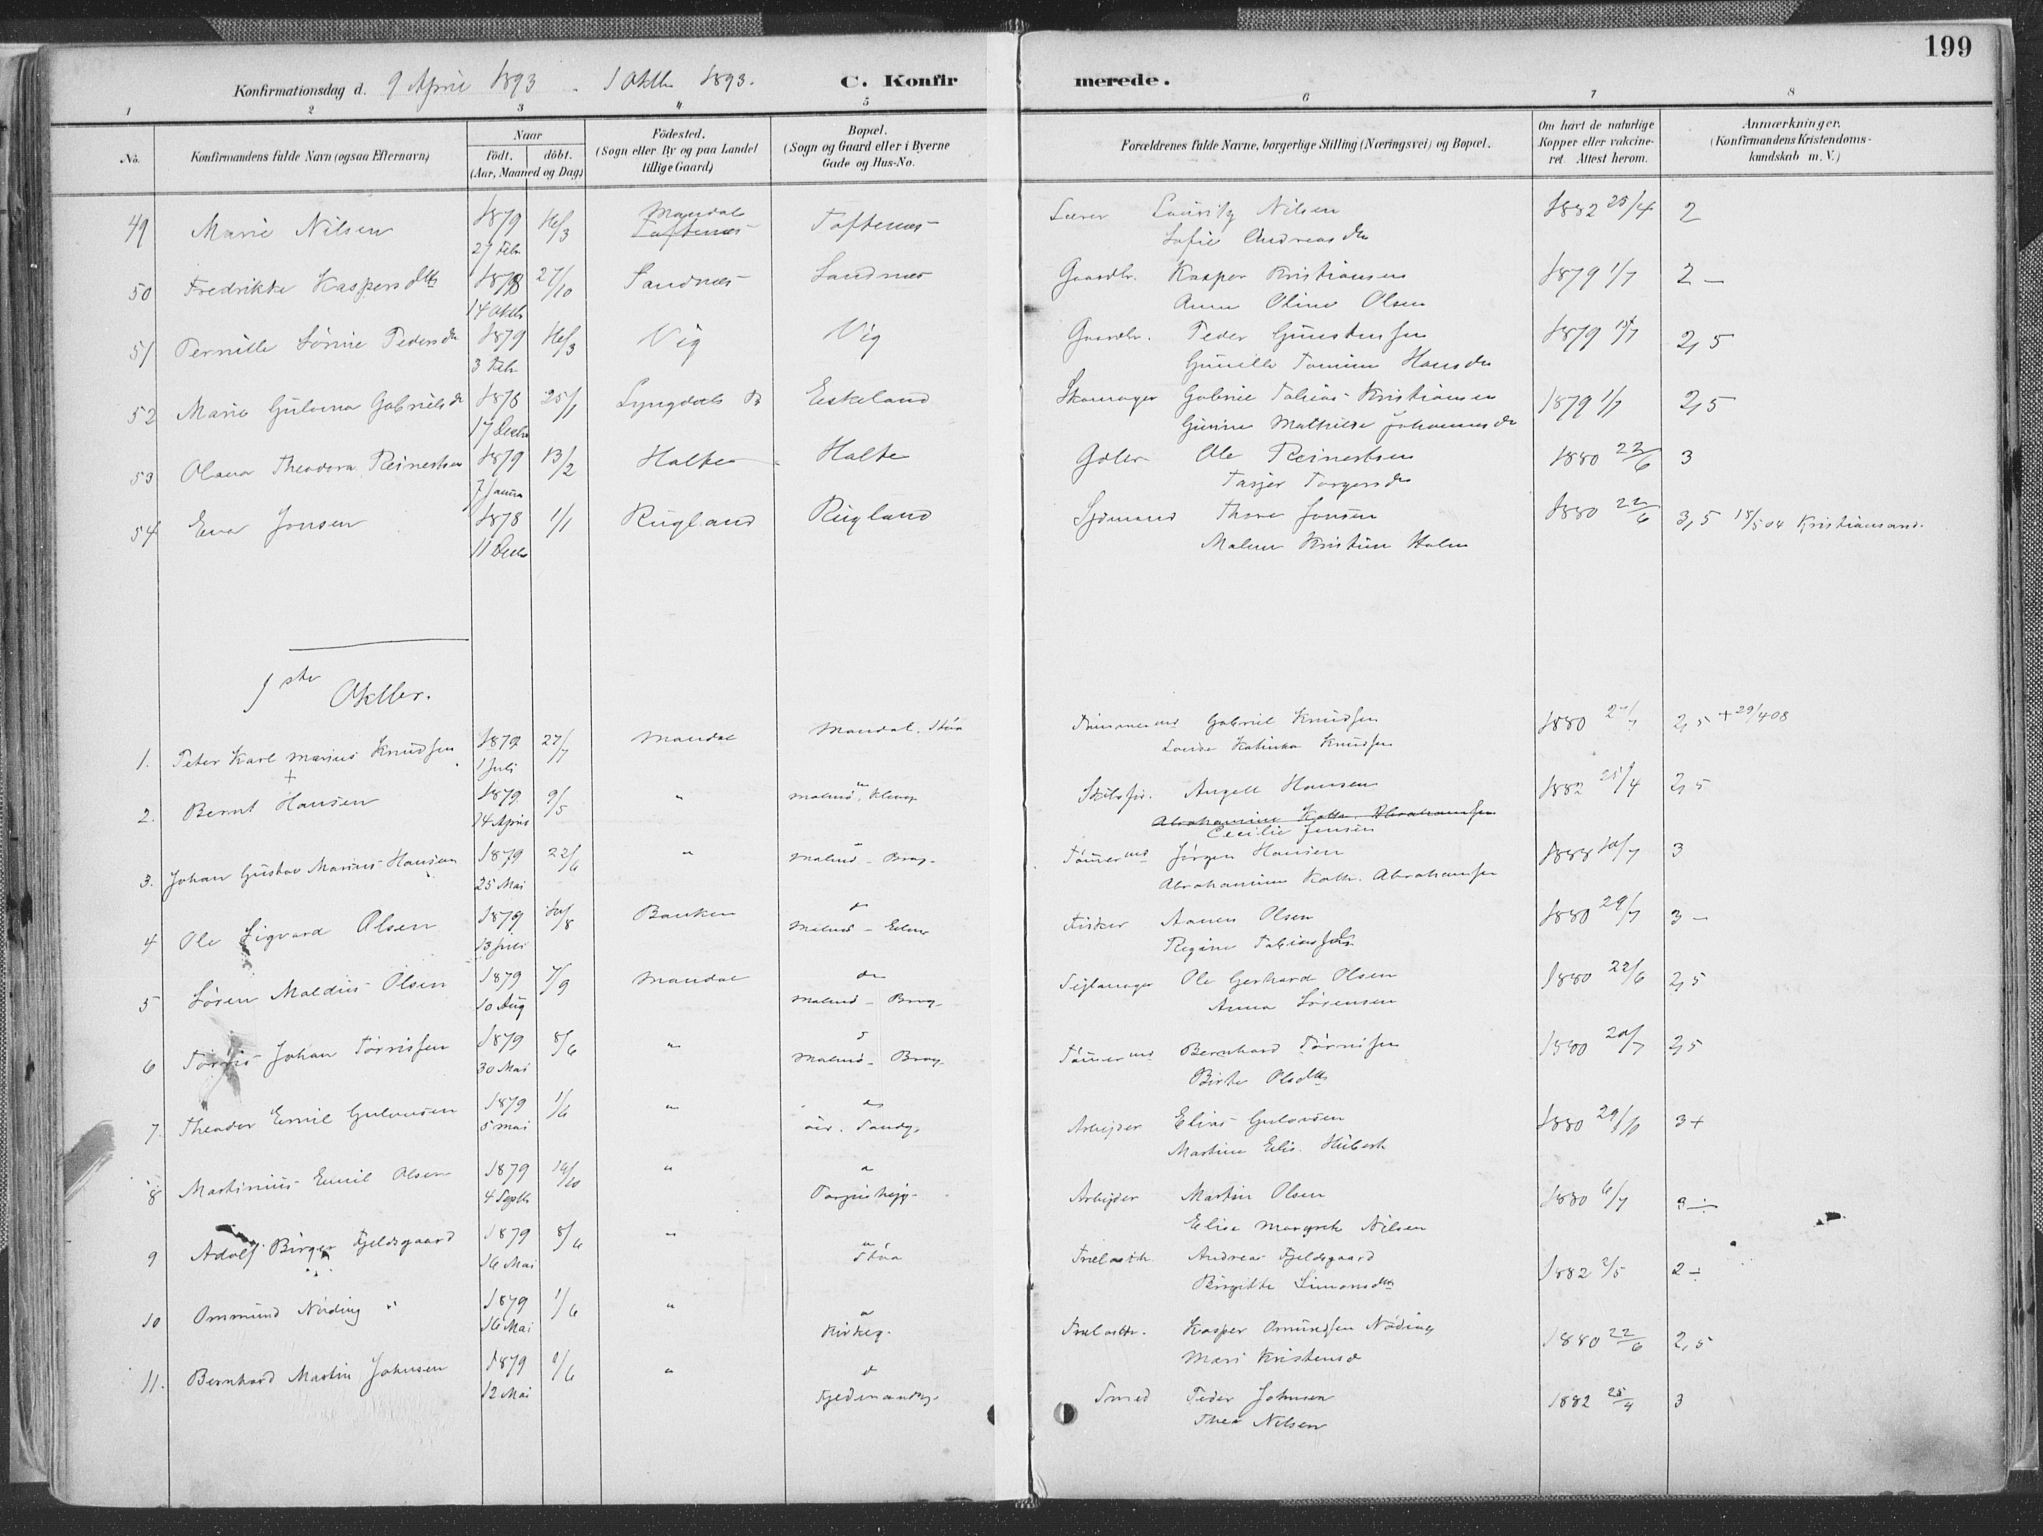 199
Konfirmationsdag d. 9 April 1893 - 1 Oktbr 1893. C. Konfirmerede.
1 2 3 4 5 6 7 8
No. Konfirmandens fulde Navn (ogsaa Efternavn) Naar födt. döbt. (Aar, Maaned og Dag) Födested. (Sogn eller By og paa Landet tillige Gaard) Bopæl. (Sogn og Gaard eller i Byerne Gade og Hus-No. Forældrenes fulde Navne, borgerlige Stilling (Næringsvei) og Bopæl. Om havt de naturlige Kopper eller vakcineret. Attest herom. Anmærkninger. (Konfirmandens Kristendomskundskab m. V.)
49 Marie Nilsen 1879 27 Febr 16/3 Mandal Toftenes Toftenes Lærer Lauritz Nilsen 1882 25/4 2
Sofie Andreasdr
50 Fredrikke Kaspersdtr 1878 14 Oktbr 27/10 Sandnes Sandnes Gaardbr. Kasper Kristiansen 1879 1/7 2 –
Anne Oline Olsen
51 Pernille Sørine Pedersdr 1879 3 Febr 16/3 Vig Vig Gaardbr. Peder Gunstensen 1879 2,5
Gunille Tomine Hansdr
52 Marie Gulovna Gabrielsdr 1878 17 Decbr 25/1 Lyngdals Eskeland Skomager Gabriel Tobias Kristiansen 1879 1/7 2,5
Gurine Mathilde Johannesdr
53 Olava Theodora Reinertsen 1879 7 Janua 13/2 Halte Halte Ole Reinertsen 1880 22/6 3
Tasjer Torgersdr
54 Eva Jonsen 1878 11 Decbr 1/1 Rugland Rugland Sjømand Thore Jonsen 1880 22/6 3,5 15/5 04 Kristiansand.
Malene Kristine Holm
1ste Oktber.
1. Peter Karl Marius Knudsen 1879 1 Juli 27/7 Mandal Mandal. Støa Tømmermd Gabriel Knudsen 1880 2,5 + 29/4 08
Lovise Katinka Knudsen
2. Bernt Hansen 1879 14 April 9/5 " Malmø, Klevg Skibsfør. Angell Hansen 1882 25/4 2,5
Abrahamine Kathr. Abrahamsen
Cecilie Jensen
3. Johan Gustav Marius Hansen 1879 25 Mai 22/6 " Malmø – Brog. Tømmermd Jørgen Hansen 3
Abrahamine Kathr. Abrahamsen
4 Ole Sigvard Olsen 1879 13 Juli Banken Malmø Fisker Aanen Olsen 1880 29/7 3 –
Regine Tobiasdtr
5 Søren Maldius Olsen 1879 10 Aug 7/9 Mandal Malmø – Brog Seglmager Ole Gerhard Olsen 1880 22/6 2,5
Anna Sørensen
6 Tørris Johan Tørrissen 1879 30 Mai 8/6 " Malmø – Brog. Tømmermd Bernhard Tørrisen 1880 20/7 2,5
Birte Olsdtr
7. Theodor Emil Gulovsen 1879 5 Mai 1/6 " Sandg. Arbejder Elias Gulovsen 1880 3+
Martine Elis. Hubert
8 Martinius Emil Olsen 1879 4 Septbr " Torjushejg. Arbejder Martin Olsen 1880 6/7 3 ÷
Elise Margrete Nilsen
9 Adolf Birger Fjeldsgaard 1879 16 Mai 8/6 " Støa Trælasth. Andreas Fjeldsgaard 1882 2/5 2 ÷
Birgitte Simonsdtr
10 Ommund Nøding 1879 16 Mai 1/6 " Kirkeg. Trælasth. Kasper Omundsen Nøding 1880 22/6 2,5
Mari Kristensd
11. Bernhard Martin Johnsen 1879 12 Mai 1/6 " Smed Peder Johnsen 1882 25/4 3
Thea Nilsen